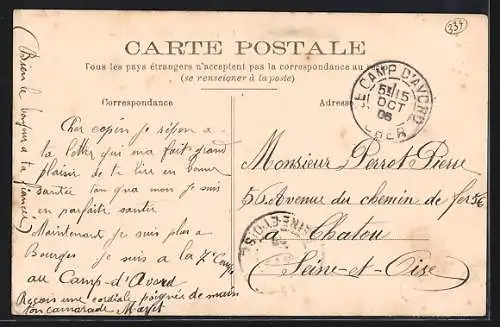 337
CARTE POSTALE
Tous les pays étrangers n'acceptent pas la correspondance au
(se renseigner à la poste)
Correspondance
Cher copin je répon a
ta letter qui ma fait grand
plaisir de ta lire en bonne
santée ton qua mon je suis
en parfaite santer
Maintenant je suis plus a
Bourges je suis a la 7e Comp
au Camp-d'Avord
Reçois une cordiale poignés de main
ton camarade Mayet
(Bien le bonjour a ta fiancée)
Adresse
LE CAMP D'AVORD
5E 15
OCT
06
CHER
Monsieur Perrot Pierre
56 Avenue du chemin de fer 56
à Chatou
(Seine-et-Oise)
SEINE-ET-OISE